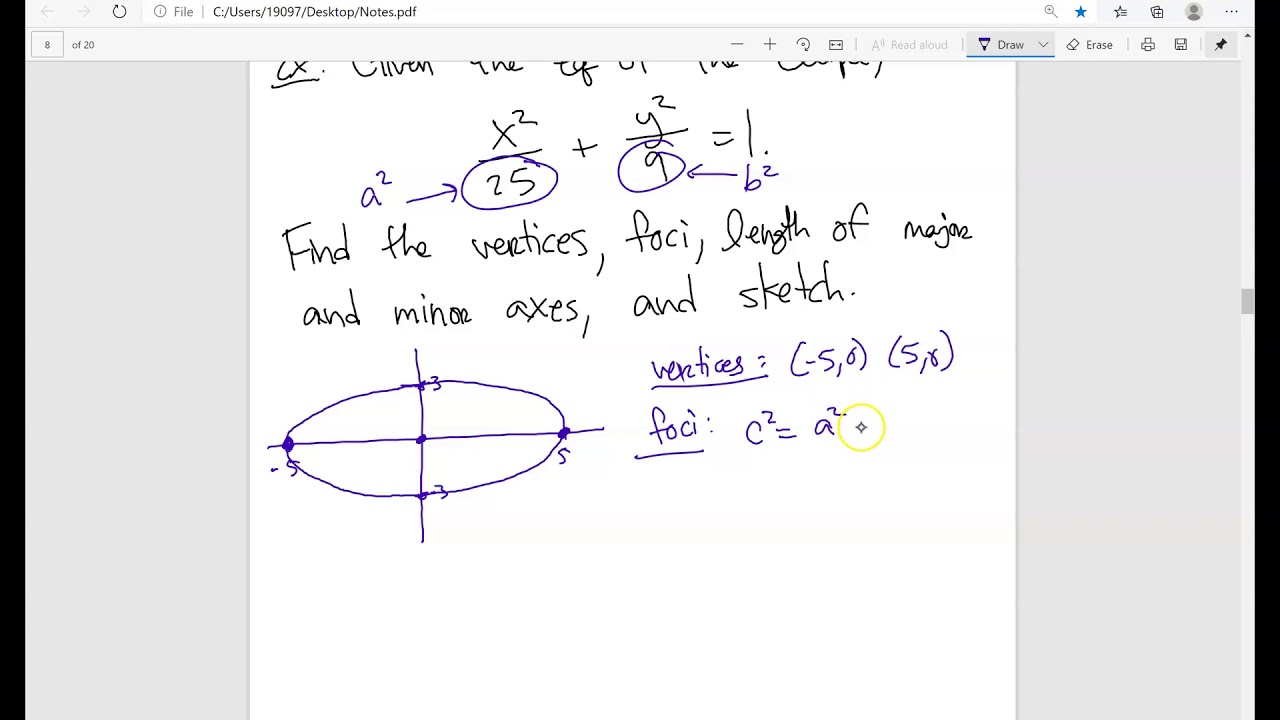 File C:/Users/19097/Desktop/Notes.pdf
8 of 20 Read aloud Draw Erase
Ex: Given the eq of the ellipse,
x²/25 + y²/9 = 1.
a² → ← b²
Find the vertices, foci, length of major
and minor axes, and sketch.
vertices: (-5,0) (5,0)
3
foci: c² = a²
-5 5
-3